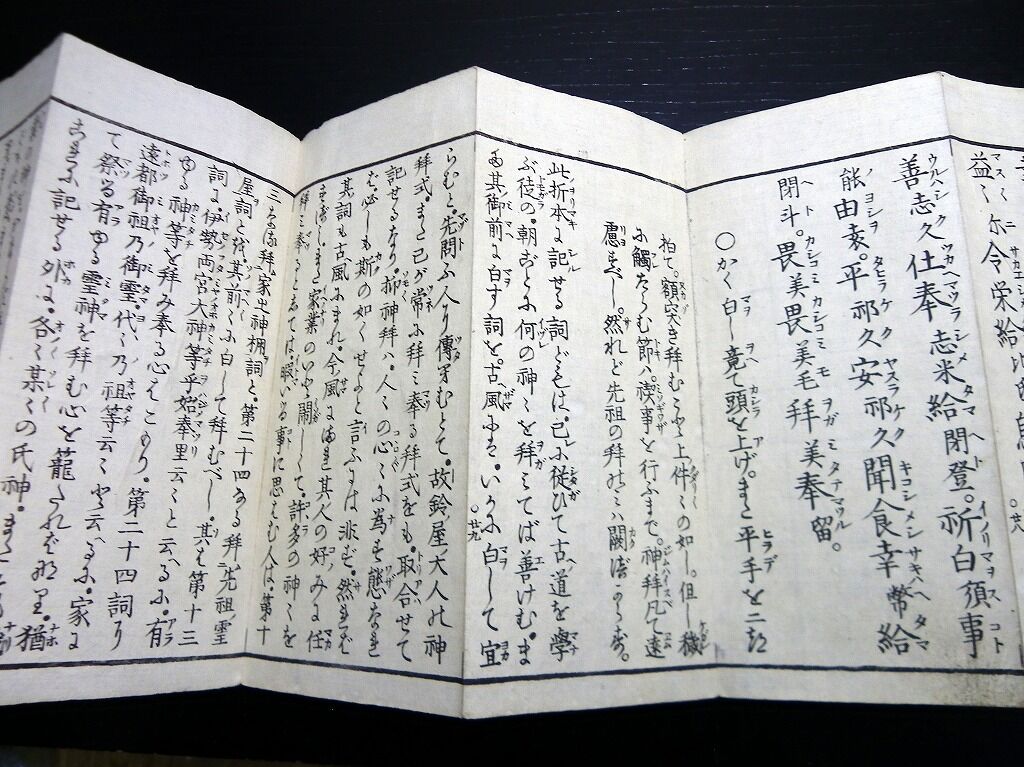 益〻尓令栄給比
善志久仕奉志米給閇登。祈白須事
能由袁。平祁久安祁久聞食幸幣給
閇斗。畏美畏美毛拜美奉留。
〇かく白し竟て頭を上げ。また平手を二
拍て。額突き拜むこと上件〻の如し。但し穢
に觸たらむ節ハ。禊事を行ふまで。神拜凡て遠
慮すべし。然れど先祖の拜のミハ闕
此折本に記せる詞どもは。己に從ひて古へ道を學
ぶ徒の。朝ごとに何の神〻を拜ミてば善けむ。ま
た其御前に白す詞を。古風には。いかに白して宜
らむと。先問ふ人り傳むとて。故鈴屋大人の神
拜式。また己が常に拜ミ奉る拜式をも。取合せて
記せるなり。抑神拜ハ。人〻の心〻に為も態なれ
ば。必しも斯の如くせよと言ふには非ず。然れば
其詞も古風にまれ。今風にまれ。其人の好みに任
すべし。また家業のいと鬧しくて。許多の神〻を
拜ミ奉るとしては。暇いる事に思はむ人は。第十
三なる拜家之神棚詞と。第二十四なる拜先祖靈
屋詞とを。其前〻に白して拜むべし。其は第十三
詞に。伊勢両宮大神等乎始奉里云〻と云へるに。有
ゆる神等を拜み奉る心はこもり。第二十四詞
遠都御祖乃御靈。代〻乃祖等云〻と云へるに。家に
て祭る有ゆる靈神を拜む心を籠たればなり。猶
こゝに記せる外に。各〻某〻の氏神。また